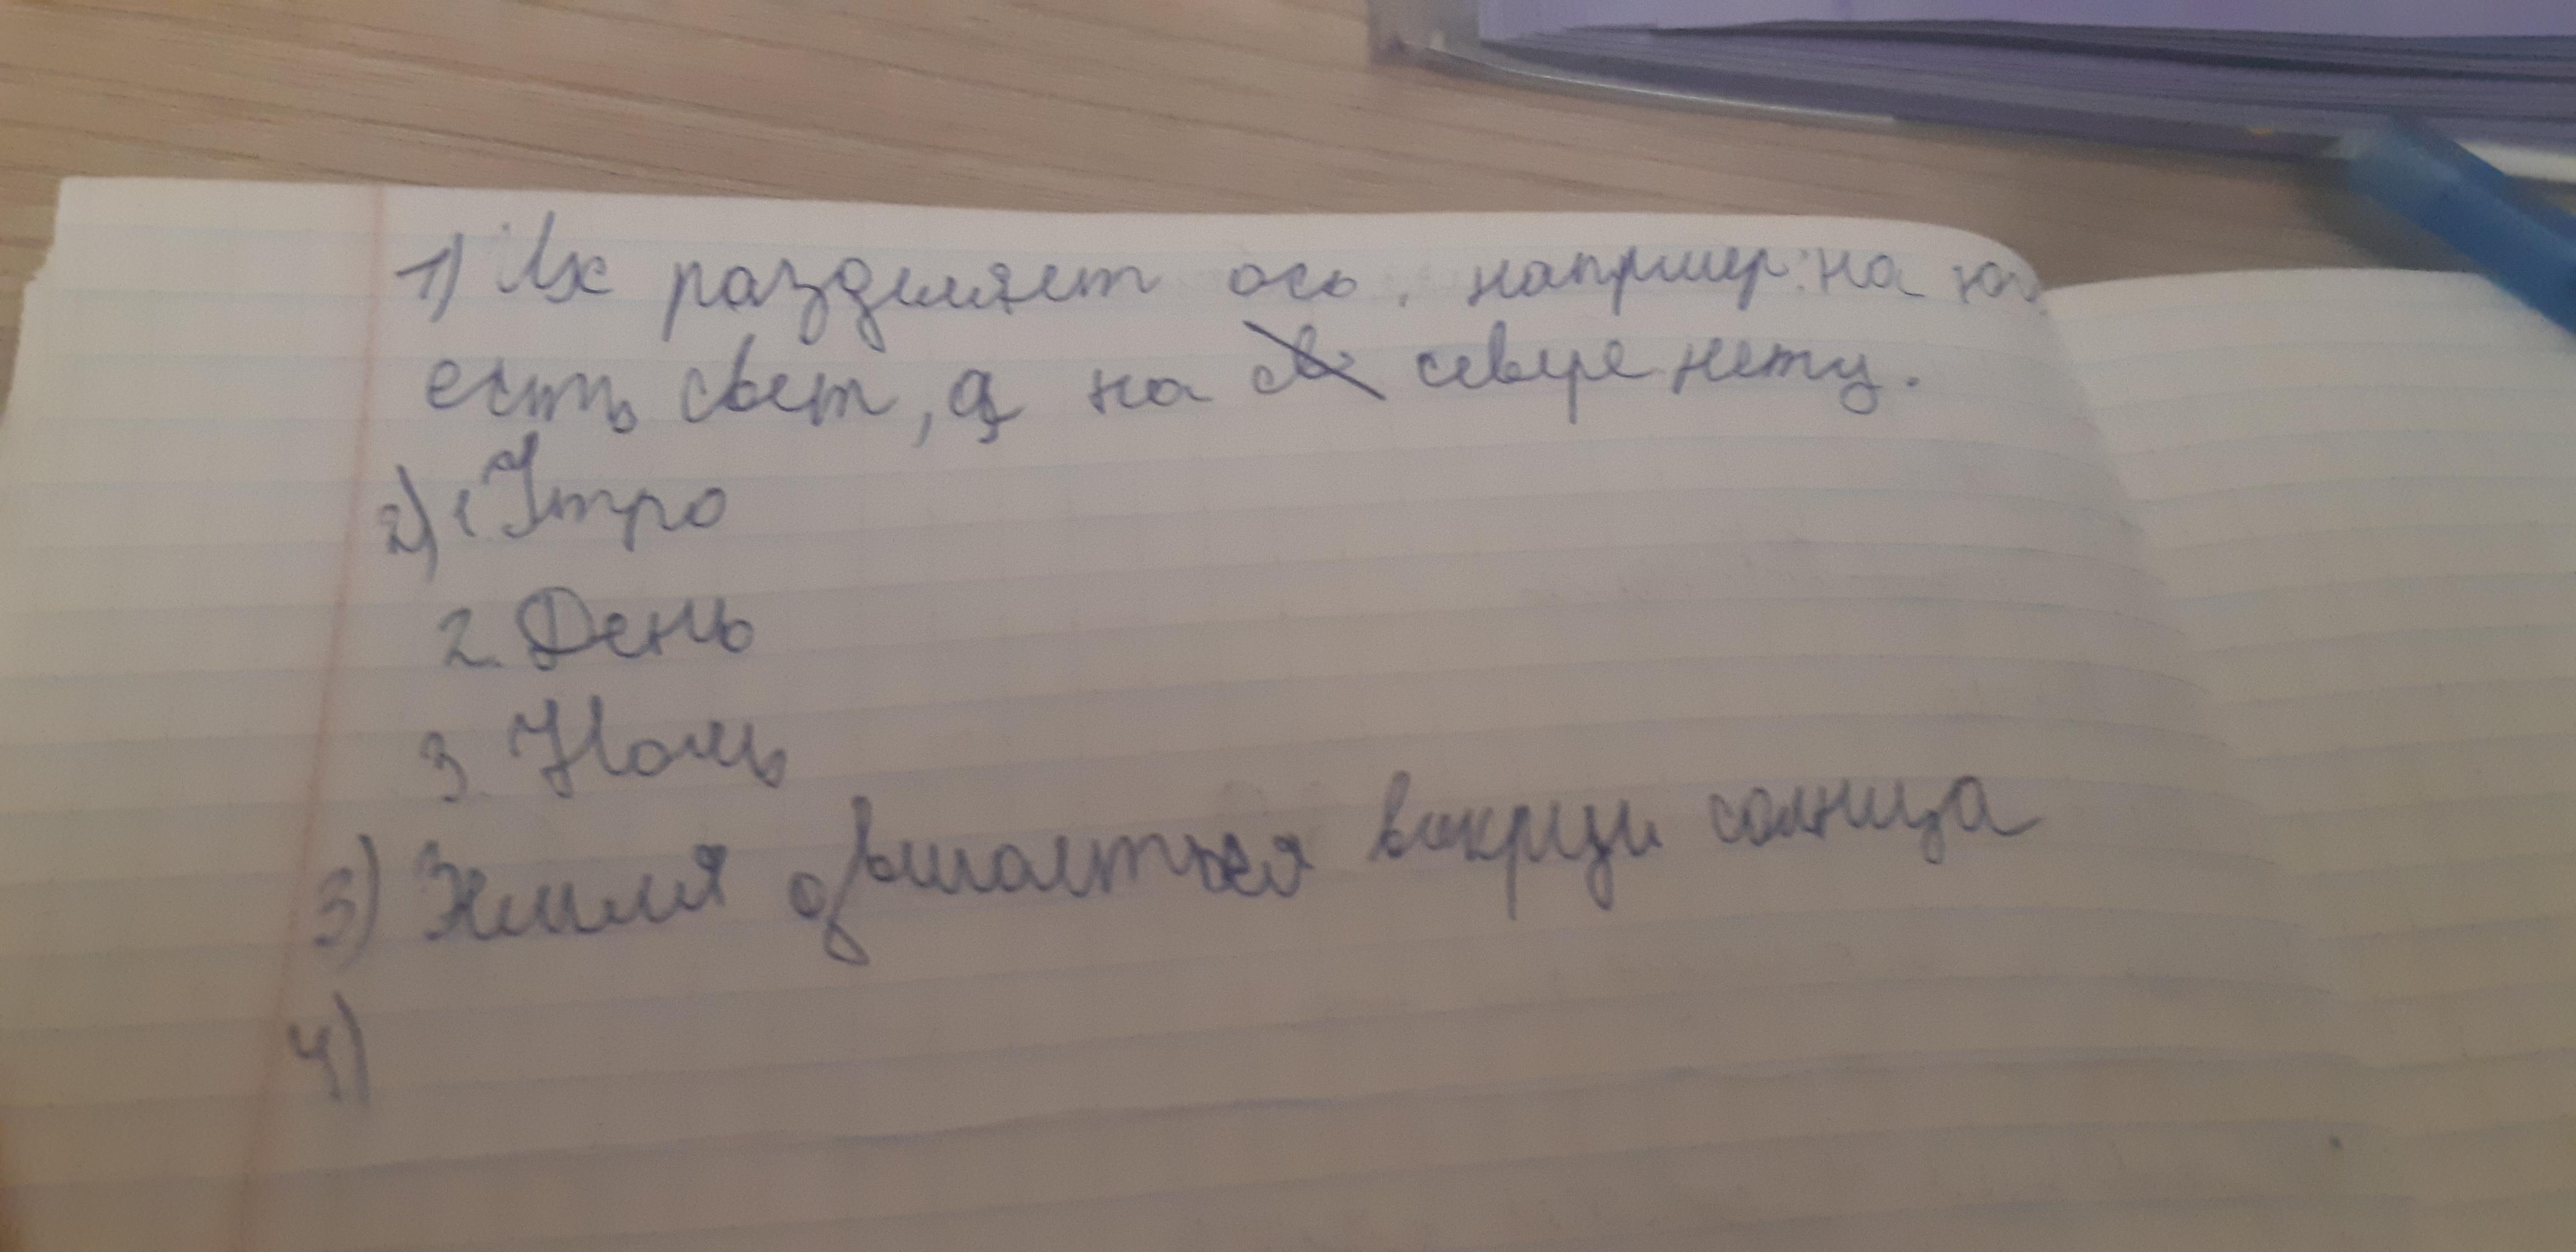 1) Их разделяет ось. например: на юг
есть свет, а на севере нету.
2) 1 Утро
2. День
3. Ночь
3) Земля
солнца
4)